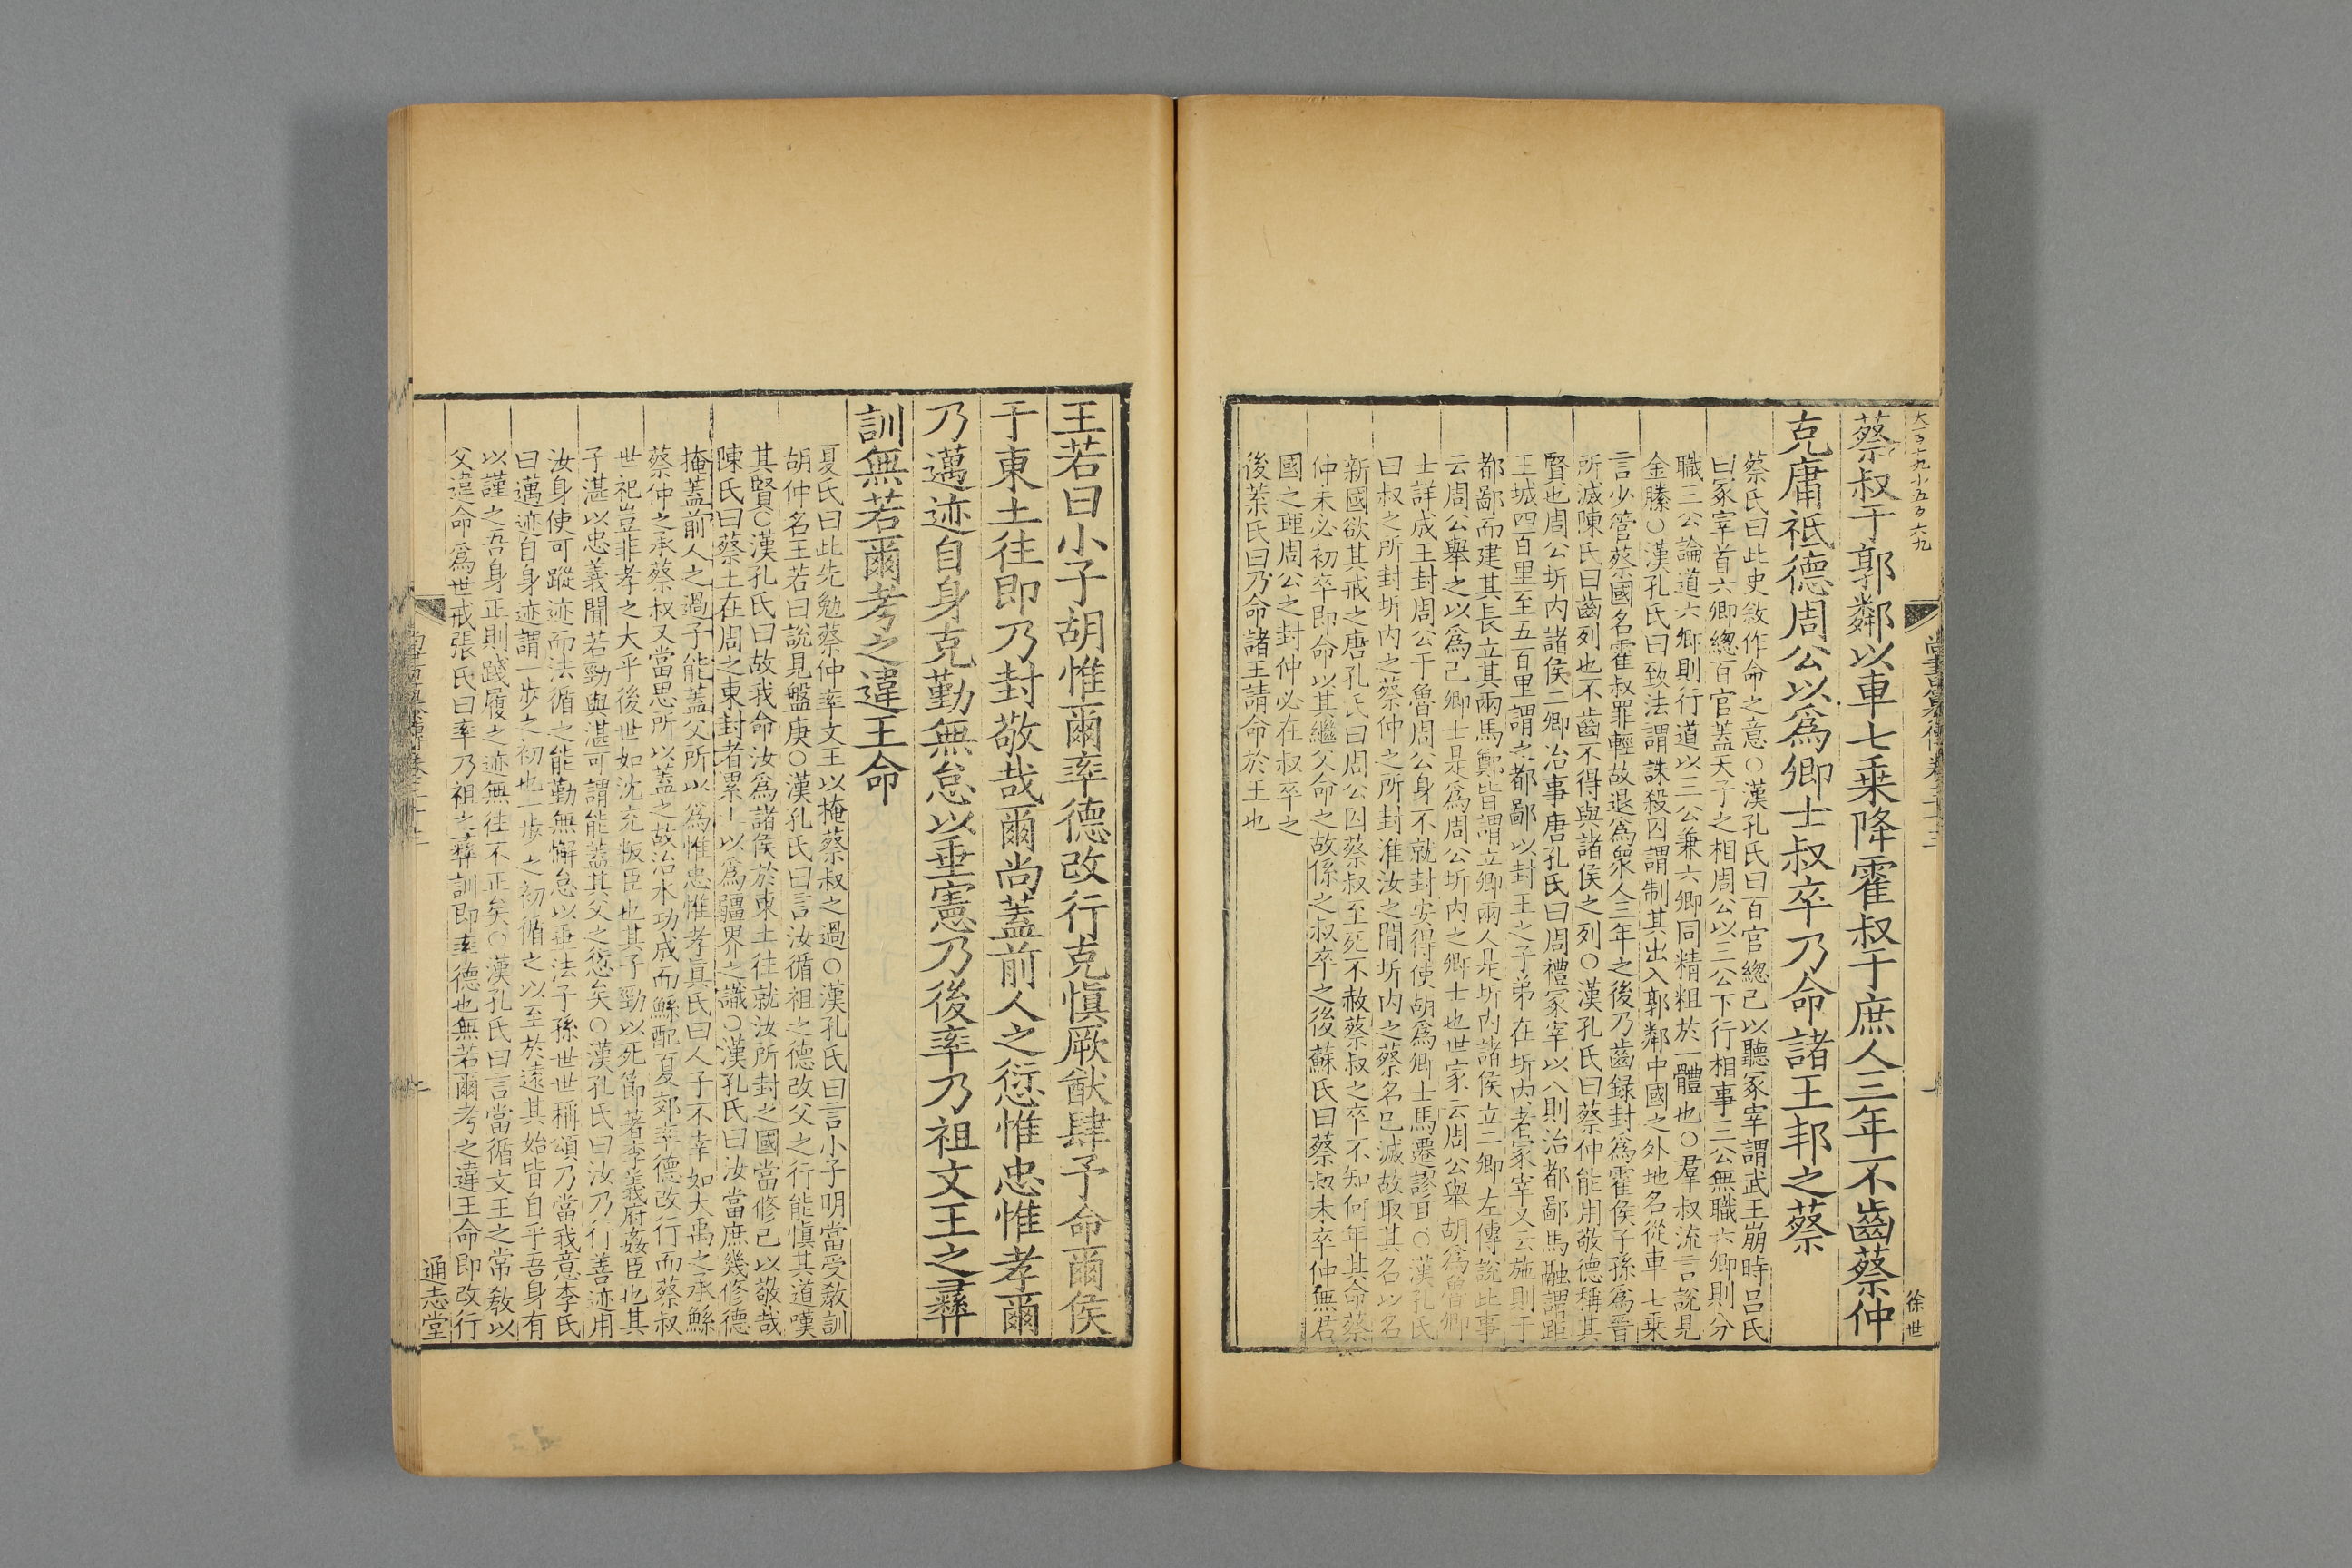 大一百十九小五百六九
尚書纂傳卷三十三
徐世
蔡叔于郭鄰以車七乘降霍叔于庶人三年不齒蔡仲
克庸祗德周公以爲卿士叔卒乃命諸王邦之蔡
蔡氏曰此史敘作命之意○漢孔氏曰百官總己以聽冢宰謂武王崩時呂氏
曰冢宰首六卿總百官蓋天子之相周公以三公下行相事三公無職六卿則分
職三公論道六卿則行道以三公兼六卿同精粗於一體也○羣叔流言說見
金縢○漢孔氏曰致法謂誅殺囚謂制其出入郭鄰中國之外地名從車七乘
言少管蔡國名霍叔罪輕故退爲衆人三年之後乃齒録封爲霍侯子孫爲晉
所滅陳氏曰齒列也不齒不得與諸侯之列○漢孔氏曰蔡仲能用敬德稱其
賢也周公圻內諸侯二卿治事唐孔氏曰周禮冢宰以八則治都鄙馬融謂距
王城四百里至五百里謂之都鄙以封王之子弟在圻內者冢宰又云施則于
都鄙而建其長立其兩馬鄭皆謂立卿兩人是圻內諸侯立二卿左傳說此事
云周公舉之以爲己卿士是爲周公圻內之卿士也世家云周公舉胡爲魯卿
士詳成王封周公于魯周公身不就封安得使胡爲卿士馬遷謬耳○漢孔氏
曰叔之所封圻內之蔡仲之所封淮汝之閒圻內之蔡名已滅故取其名以名
新國欲其戒之唐孔氏曰周公囚蔡叔至死不赦蔡叔之卒不知何年其命蔡
仲未必初卒即命以其繼父命之故係之叔卒之後蘇氏曰蔡叔未卒仲無君
國之理周公之封仲必在叔卒之
後葉氏曰乃命諸王請命於王也
王若曰小子胡惟爾率德改行克愼厥猷肆予命爾侯
于東土往即乃封敬哉爾尚蓋前人之愆惟忠惟孝爾
乃邁迹自身克勤無怠以垂憲乃後率乃祖文王之彝
訓無若爾考之違王命
夏氏曰此先勉蔡仲率文王以掩蔡叔之過○漢孔氏曰言小子明當受敎訓
胡仲名王若曰說見盤庚○漢孔氏曰言汝循祖之德改父之行能愼其道嘆
其賢○漢孔氏曰故我命汝爲諸侯於東土往就汝所封之國當修己以敬哉
陳氏曰蔡土在周之東封者累土以爲疆界之識○漢孔氏曰汝當庶幾修德
掩蓋前人之過子能蓋父所以爲惟忠惟孝眞氏曰人子不幸如大禹之承鯀
蔡仲之承蔡叔又當思所以蓋之故治水功成而鯀配夏郊率德改行而蔡叔
世祀豈非孝之大乎後世如沈充叛臣也其子勁以死節著李義府姦臣也其
子湛以忠義聞若勁與湛可謂能蓋其父之愆矣○漢孔氏曰汝乃行善迹用
汝身使可蹤迹而法循之能勤無懈怠以垂法子孫世世稱頌乃當我意李氏
曰邁迹自身迹謂一步之初也一步之初循之以至於遠其始皆自乎吾身有
以謹之吾身正則踐履之迹無往不正矣○漢孔氏曰言當循文王之常敎以
父違命爲世戒張氏曰率乃祖之彝訓即率德也無若爾考之違王命即改行
通志堂